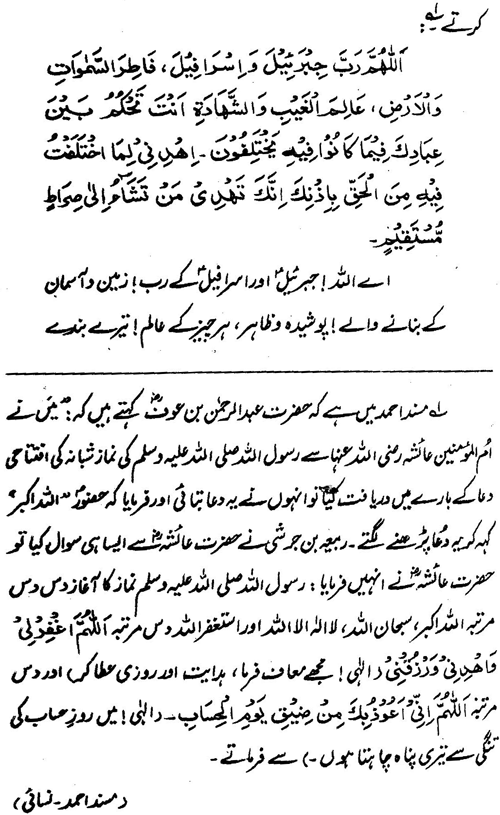 کرتے لہ:
اَللّٰهُمَّ رَبَّ جِبْرَئِيْلَ وَاِسْرَافِيْلَ، فَاطِرَ السَّمٰوَاتِ
وَالْاَرْضِ، عَالِمَ الْغَيْبِ وَالشَّهَادَةِ اَنْتَ تَحْكُمُ بَيْنَ
عِبَادِكَ فِيْمَا كَانُوْا فِيْهِ يَخْتَلِفُوْنَ۔ اِهْدِنِيْ لِمَا اخْتَلَفْتُ
فِيْهِ مِنَ الْحَقِّ بِاِذْنِكَ اِنَّكَ تَهْدِيْ مَنْ تَشَآءُ اِلٰى صِرَاطٍ
مُّسْتَقِيْمٍ۔
اے اللہ! جبرئیلؑ اور اسرافیلؑ کے رب! زمین و آسمان
کے بنانے والے! پوشیدہ و ظاہر، ہر چیز کے عالم! تیرے بندے
لہ مسند احمد میں ہے کہ حضرت عبدالرحمٰن بن عوفؓ کہتے ہیں کہ: "میں نے
ام المؤمنین عائشہ رضی اللہ عنہا سے رسول اللہ صلی اللہ علیہ وسلم کی نماز شبانہ کی افتتاحی
دعا کے بارے میں دریافت کیا تو انہوں نے یہ دعا بتائی اور فرمایا کہ حضورؐ "اللہ اکبر"
کہہ کر یہ دُعا پڑھنے لگتے۔ ربیعہ بن جرشی نے حضرت عائشہؓ سے ایسا ہی سوال کیا تو
حضرت عائشہؓ نے انہیں فرمایا: رسول اللہ صلی اللہ علیہ وسلم نماز کا آغاز دس دس
مرتبہ اللہ اکبر، سبحان اللہ، لا الہ الا اللہ اور استغفر اللہ دس مرتبہ اَللّٰهُمَّ اغْفِرْلِيْ
وَاهْدِنِيْ وَرْزُقْنِيْ (الٰہی! مجھے معاف فرما، ہدایت اور روزی عطا کر) اور دس
مرتبہ اَللّٰهُمَّ اِنِّيْ اَعُوْذُبِكَ مِنْ ضِيْقِ يَوْمِ الْحِسَابِ۔ (الٰہی! میں روزِ حساب کی
تنگی سے تیری پناہ چاہتا ہوں۔) سے فرماتے۔
(مسند احمد۔ نسائی)